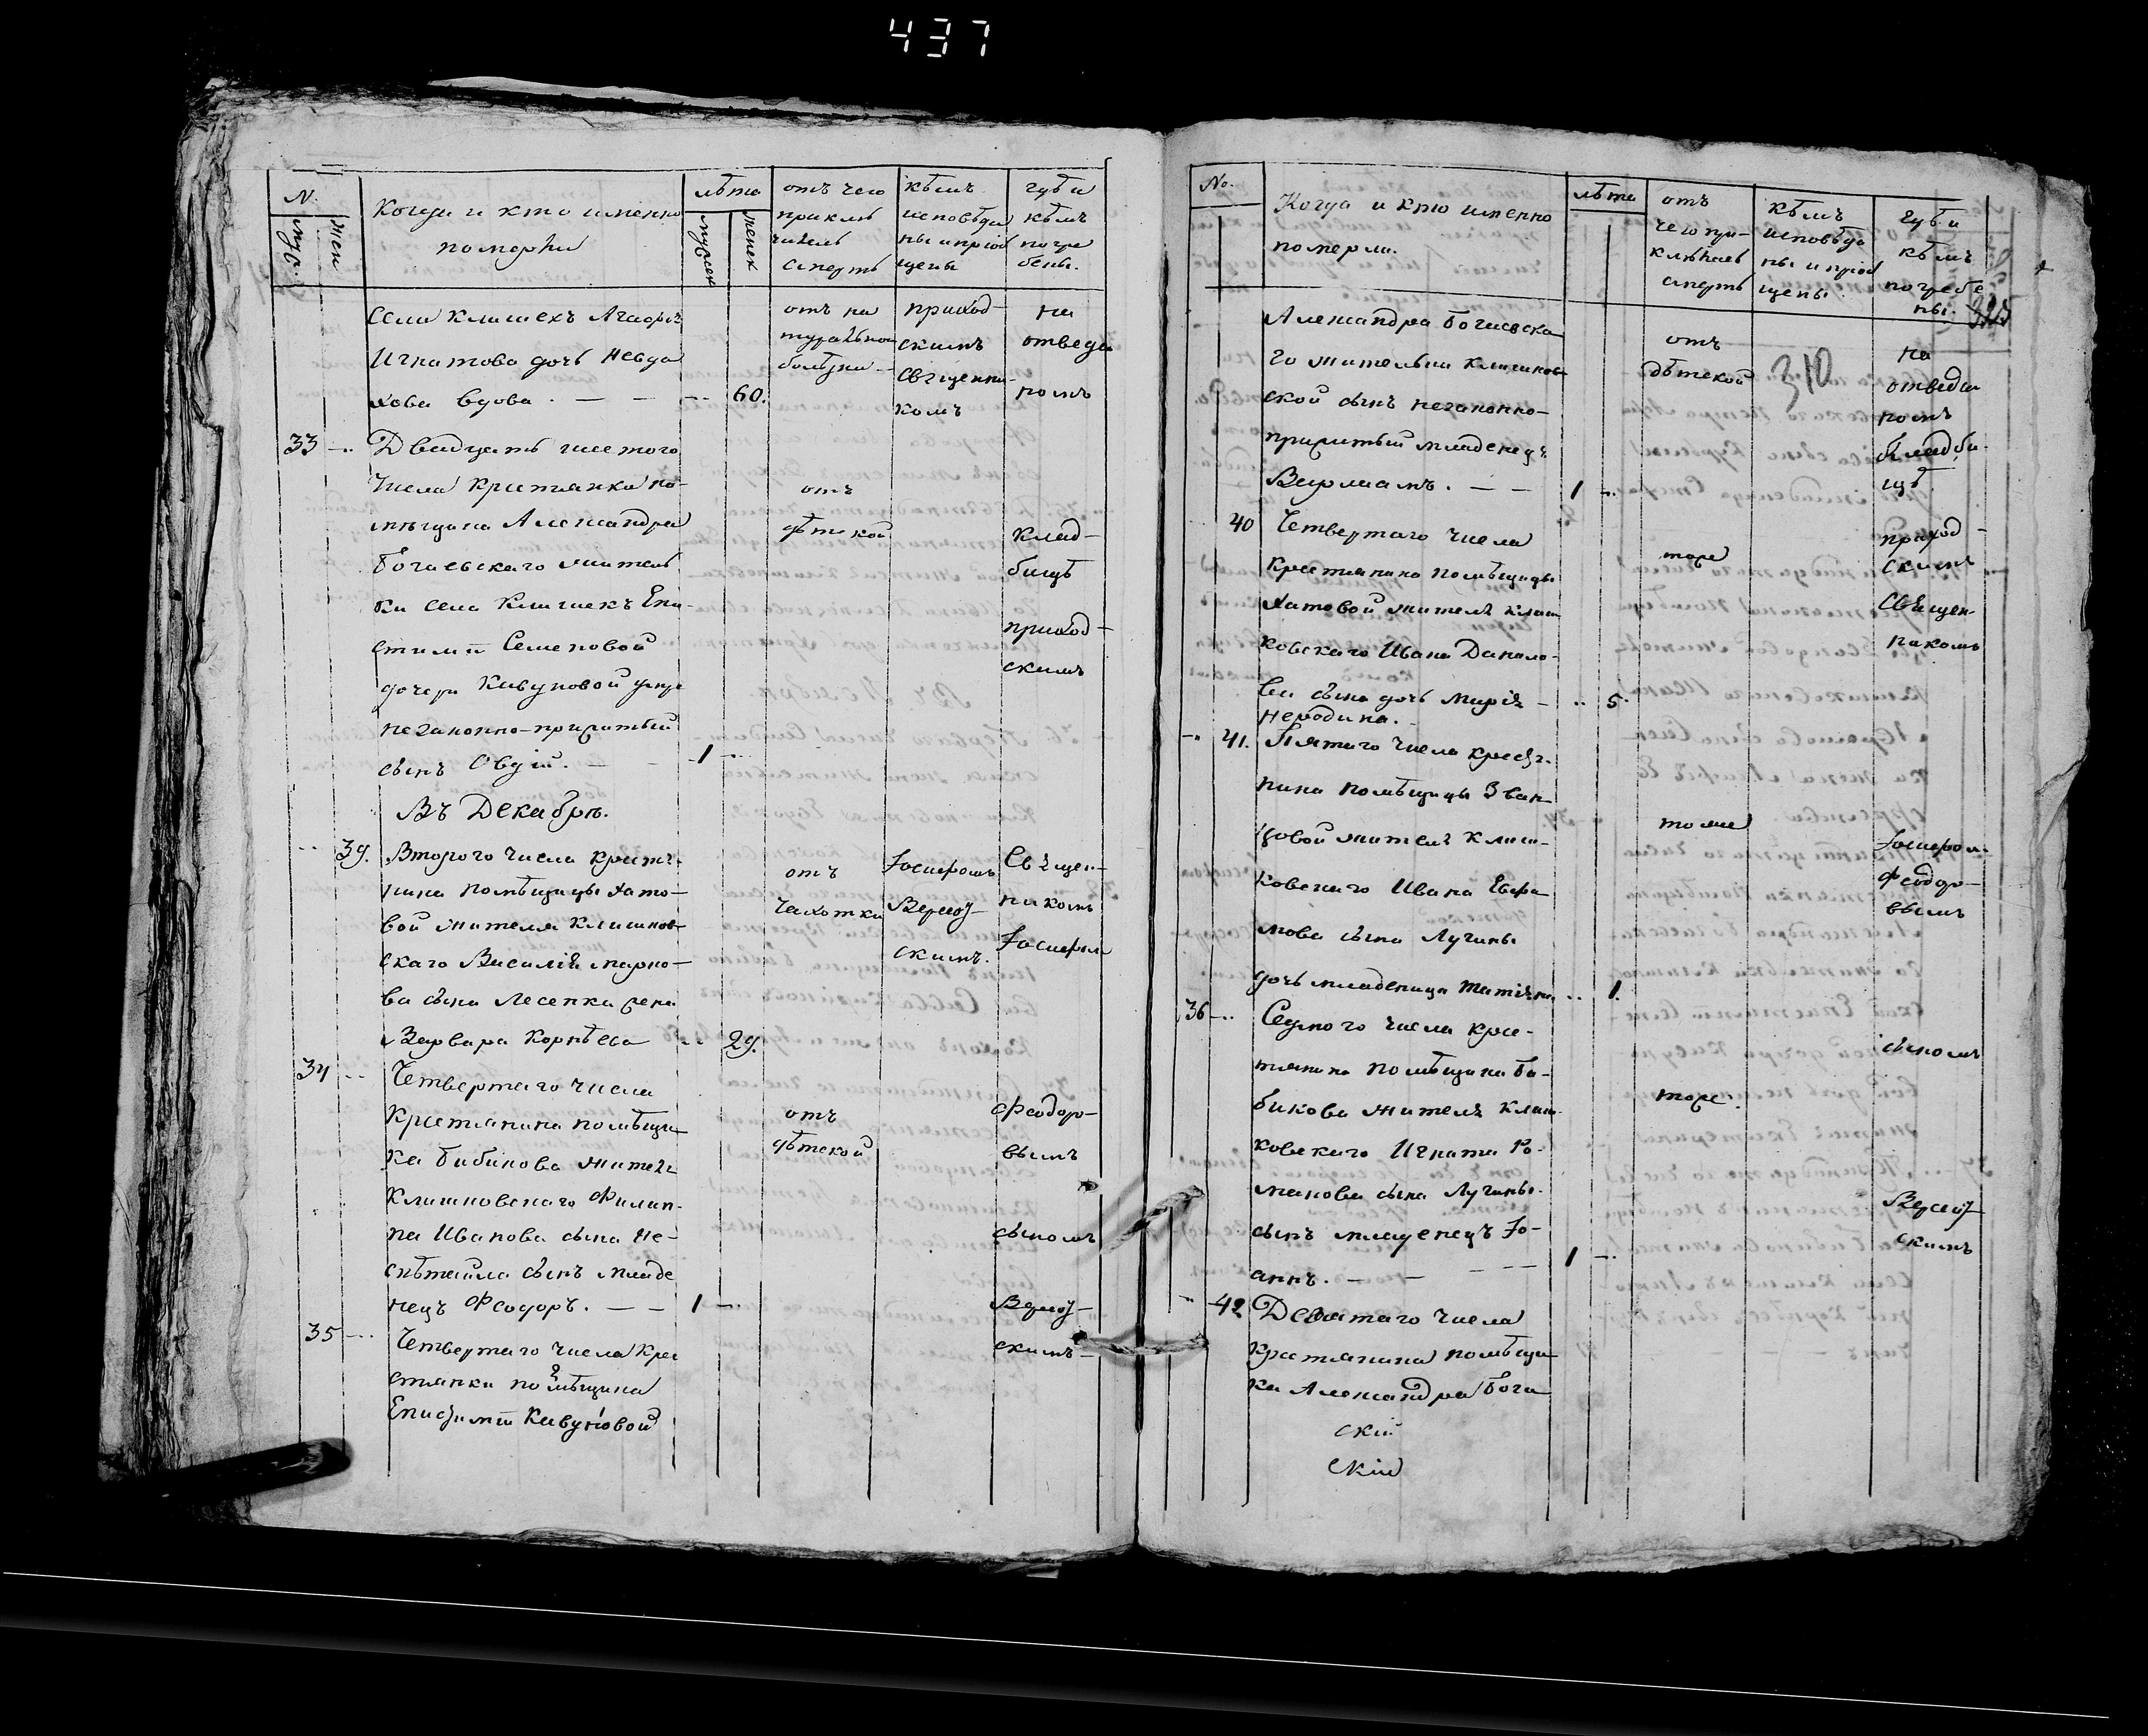 437
N.
муж.
жен
Когда и кто именно
померли
лѣта
мужеск
женск
отъ чего
приклю
чилась
смерть
кѣмъ
исповѣда
ны и пріоб
щены
гдѣ и
кѣмъ
погре
бены.
села Клишекъ Агафія
Игнатова дочь
вдова
60.
отъ на
туральной
болѣзни
приход-
скимъ
священни-
комъ
на
отведен
номъ
33
Двадцать шестого
числа крестянки по-
мѣщика Александра
Богаевскаго житель
ки села Клишекъ Епи-
стиміи Семеновой
дочери Кивуновой
незаконно-прижитый
сынъ
1
отъ
дѣтской
клад-
бищѣ
приход-
скимъ
Въ Декабрѣ.
39.
Второго числа крестя-
нина помѣщицы Хато-
вой жителя Клишков-
скаго Василія Марко-
ва сына Лесенка жена
Варвара Корнѣева
29.
отъ
чахотки
Іосифомъ
скимъ.
Священ-
никомъ
Іосифом
34
Четвертаго числа
Крестянина помѣщи-
ка Бибикова жителя
Клишковскаго Филип-
па Иванова сына Не-
сына младе
нецъ Феодоръ.
1
отъ
дѣтской
Феодор-
вымъ
сыномъ
скимъ
35
Четвертаго числа Кре
стянки помѣщика
Епистиміи Кивуновой
No.
Когда и кто именно
померли.
лѣта
отъ
чего при-
ключилась
смерть
кѣмъ
исповѣда
ны и пріоб
щены.
гдѣ и
кѣмъ
погребе
ны.
310
Александра Богаевска
го жительки Клишков-
ской сынъ незаконно-
прижитый младенецъ
Варлаамъ.
1
отъ
дѣтской
на
отведен
номъ
кладби-
щѣ
40
Четвертаго числа
Крестянина помѣщицы
Хатовой жителя Клиш
ковскаго Ивана Данило-
ва сына дочь Марія
5.
тоже
приход-
скимъ
Священ-
никомъ
41.
Пятаго числа крестя-
нина помѣщицы Зван-
цовой жителя Клиш-
ковскаго Ивана Ефре
мова сына Лучины
дочь младеница Татіяна
1.
тоже
Іосифом.
Феодор-
вымъ
36
Седмого числа Кре-
стянина помѣщика Би-
бикова жителя Клиш-
ковскаго Игната Ро-
манова сына Лучины.
сынъ младенецъ Іо-
аннъ.
1
тоже.
сыномъ
скимъ
42
Девятаго числа
Крестянина помѣщи-
ка Александра Бога
скій
скій